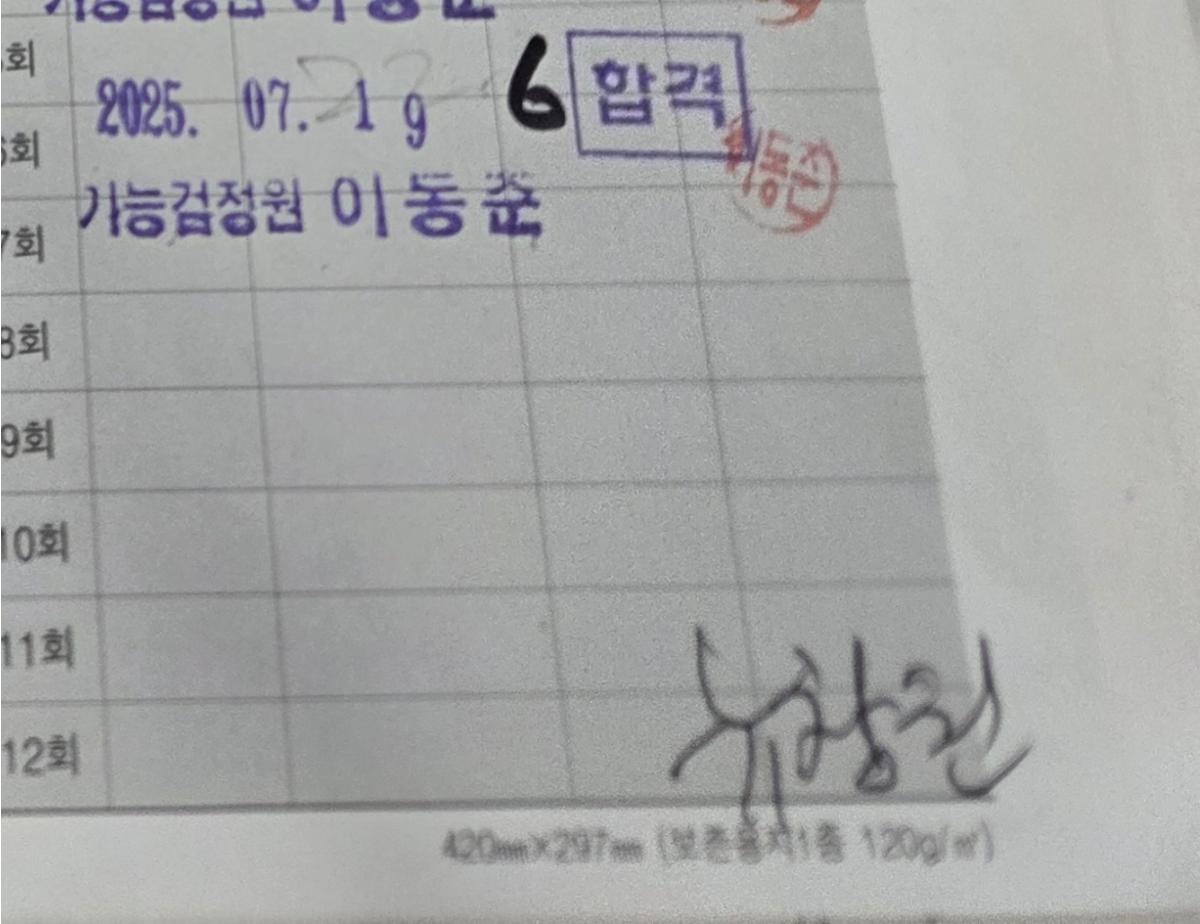 기능검정원 이동준
회
2025. 07. 19 6 합격
6회
이동준
기능검정원 이동준
7회
8회
9회
10회
11회
12회
420㎜×297㎜ (보존용지1종 120g/㎡)